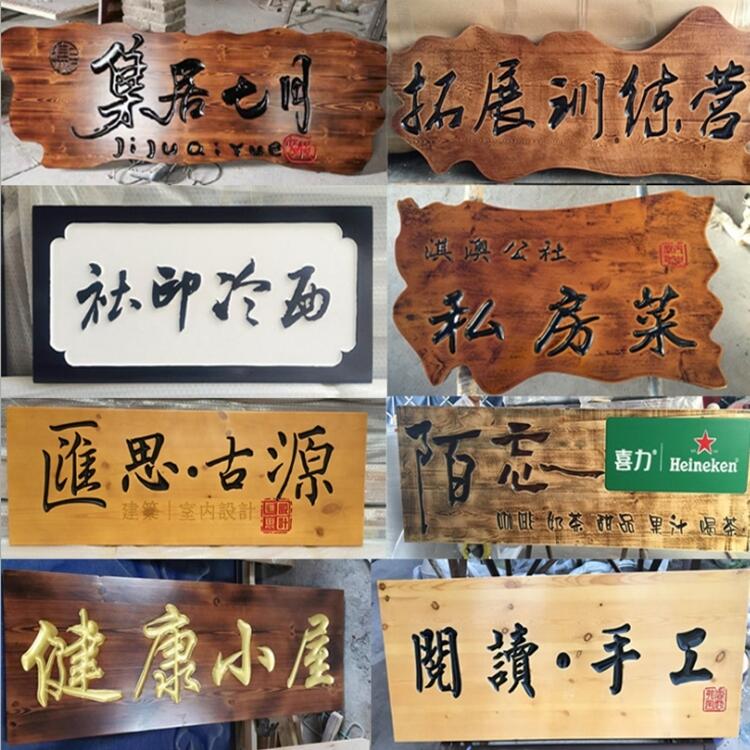 集居七月
JiJuQiYue
拓展训练营
西冷印社
淇澳公社
私房菜
匯思·古源
建築|室内設計
陌忘
喜力 Heineken
咖啡 奶茶 甜品 果汁 喝茶
健康小屋
閱讀·手工